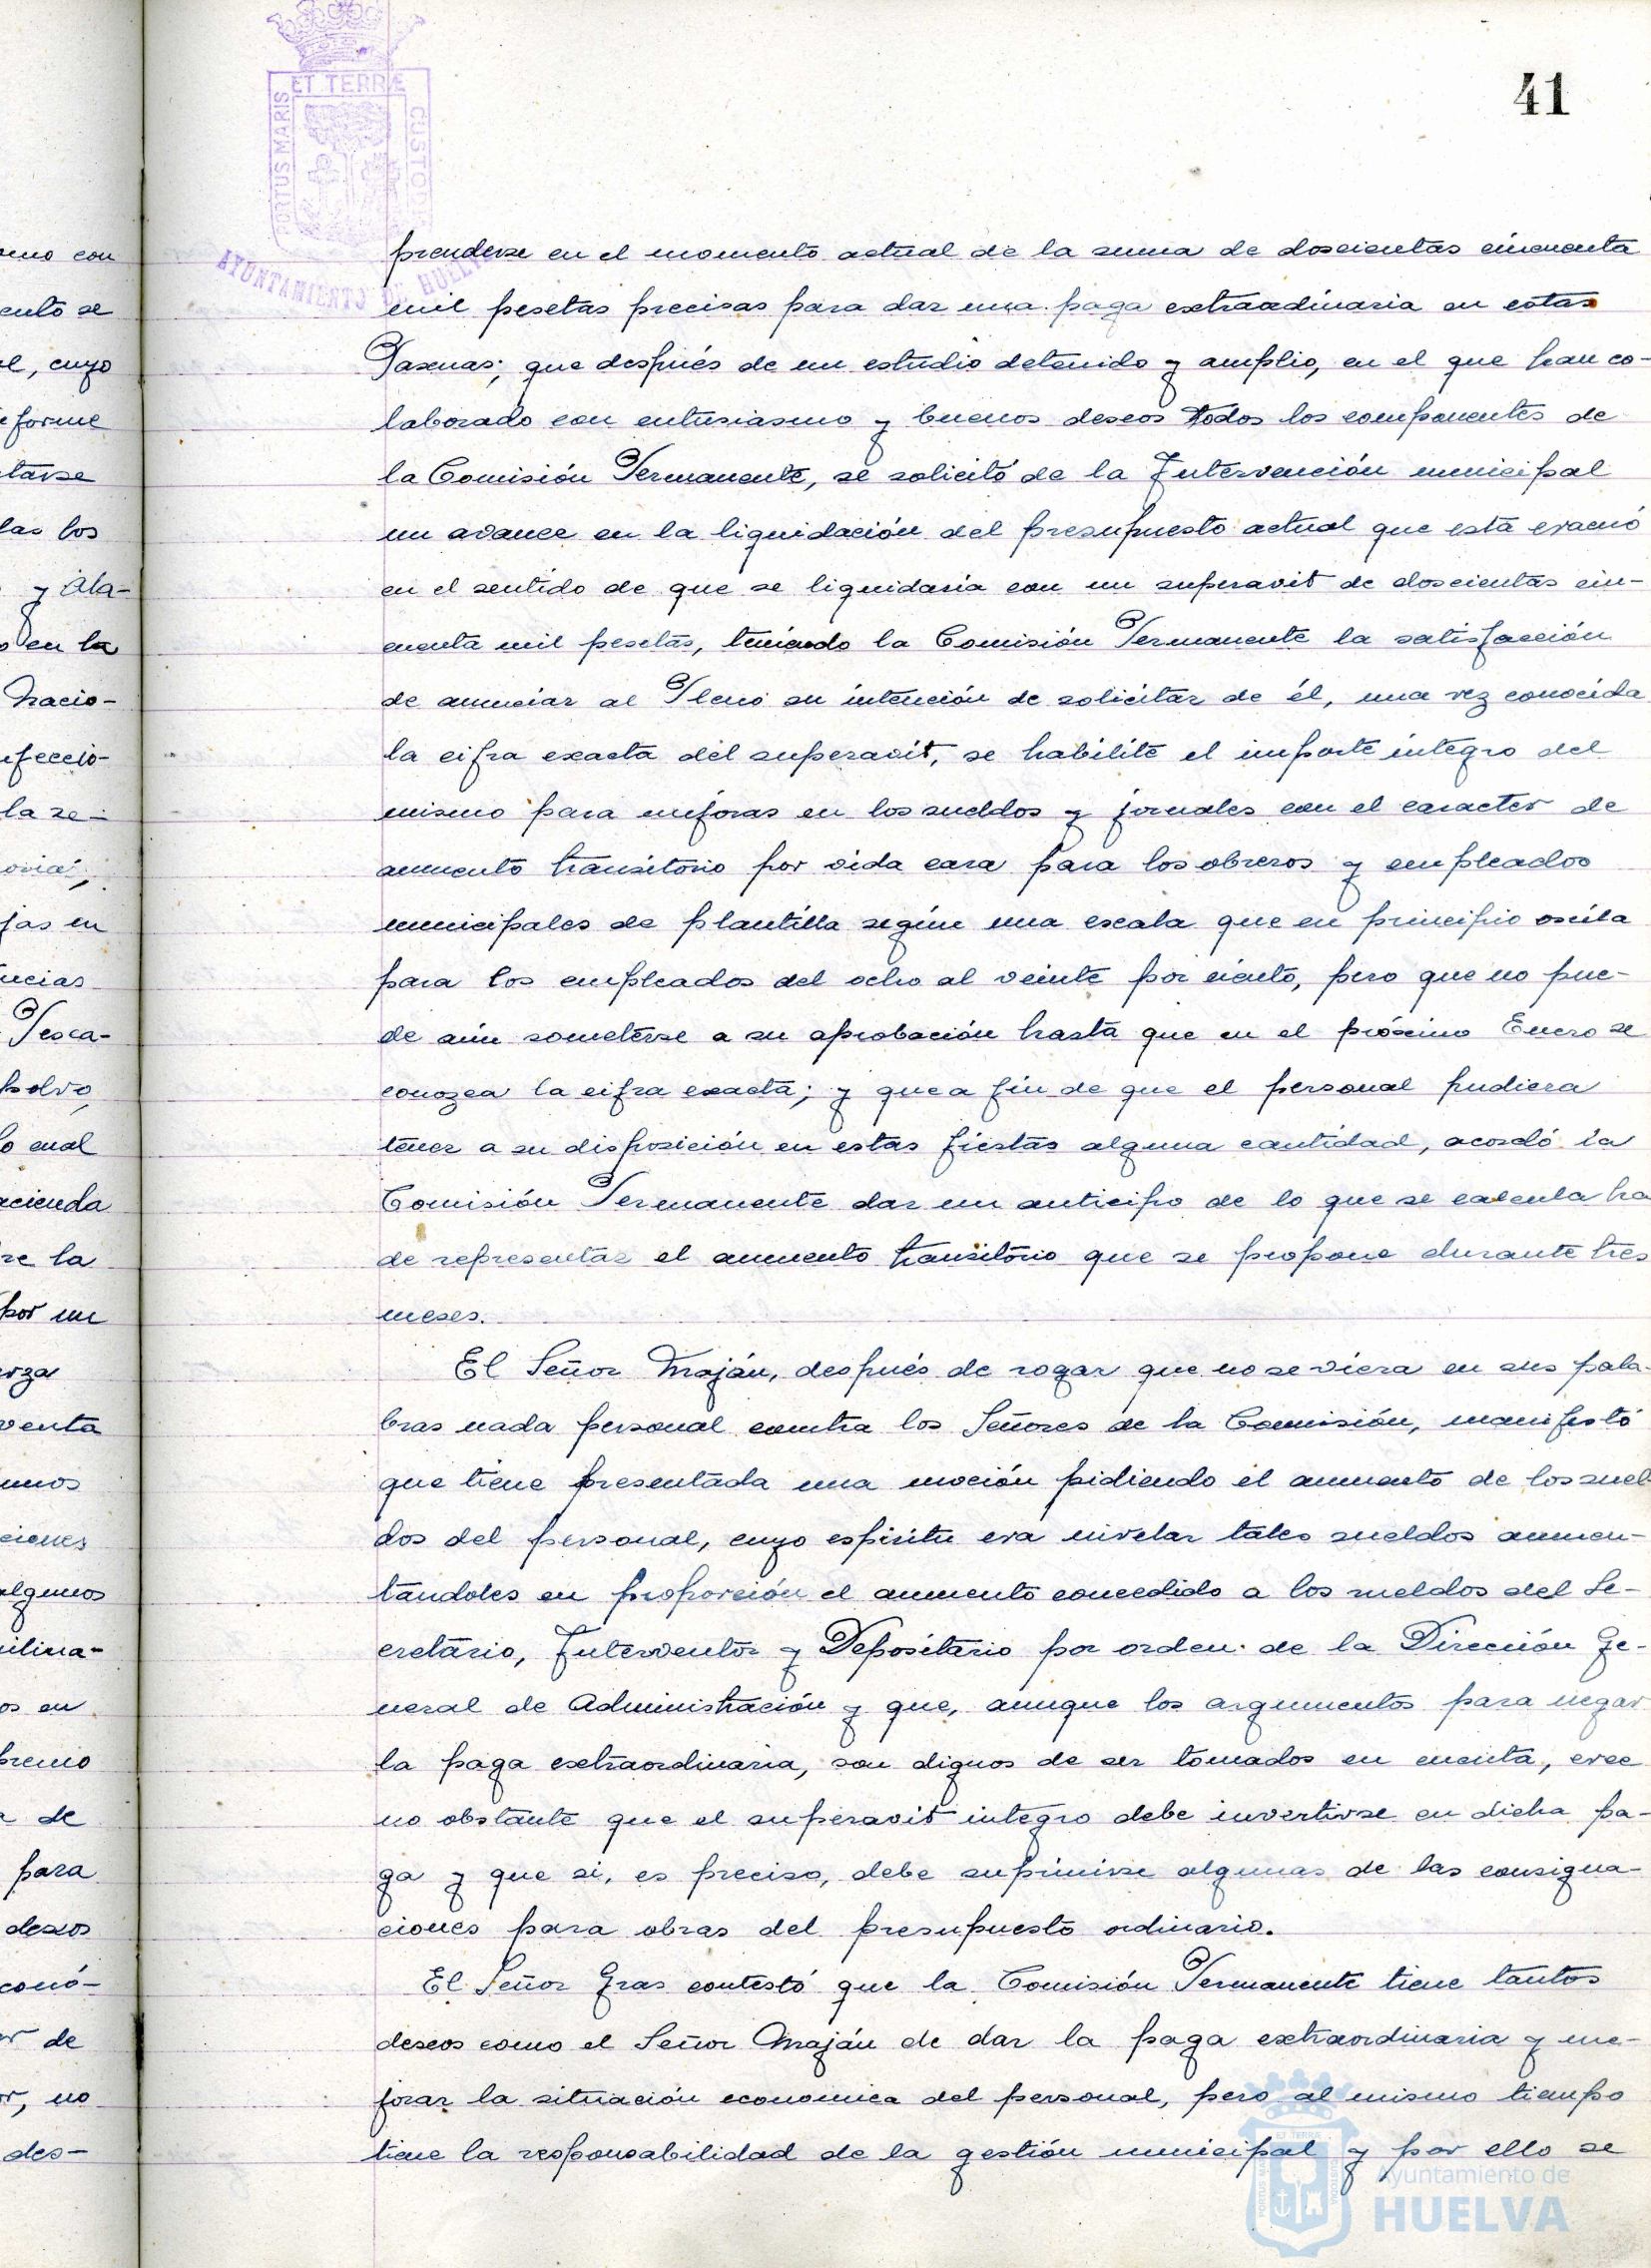 41
PORTUS MARIS ET TERRÆ CUSTODIA
AYUNTAMIENTO DE HUELVA
prenderse en el momento actual de la suma de doscientas cincuenta
mil pesetas precisas para dar una paga extraordinaria en estas
Pascuas; que después de un estudio detenido y amplio, en el que han co-
laborado con entusiasmo y buenos deseos todos los componentes de
la Comisión Permanente, se solicitó de la Intervención municipal
un avance en la liquidación del presupuesto actual que está evacuó
en el sentido de que se liquidaría con un superavit de doscientas cin-
cuenta mil pesetas, teniendo la Comisión Permanente la satisfacción
de anunciar al Pleno su intención de solicitar de él, una vez conocida
la cifra exacta del superavit, se habilite el importe íntegro del
mismo para mejoras en los sueldos y jornales con el caracter de
aumento transitorio por vida cara para los obreros y empleados
municipales de plantilla según una escala que en principio oscila
para los empleados del ocho al veinte por ciento, pero que no pue-
de aún someterse a su aprobación hasta que en el próximo Enero se
conozca la cifra exacta; y que a fin de que el personal pudiera
tener a su disposición en estas fiestas alguna cantidad, acordó la
Comisión Permanente dar un anticipo de lo que se calcula ha
de representar el aumento transitorio que se propone durante tres
meses.
El Señor Maján, después de rogar que no se viera en sus pala-
bras nada personal contra los Señores de la Comisión, manifestó
que tiene presentada una moción pidiendo el aumento de los suel-
dos del personal, cuyo espíritu era nivelar tales sueldos aumen-
tándoles en proporción el aumento concedido a los sueldos del Se-
cretario, Interventor y Depositario por orden de la Dirección Ge-
neral de Administración y que, aunque los argumentos para negar
la paga extraordinaria, son dignos de ser tomados en cuenta, cree
no obstante que el superavit integro debe invertirse en dicha pa-
ga y que si, es preciso, debe suprimirse algunas de las consigna-
ciones para obras del presupuesto ordinario.
El Señor Gras contestó que la Comisión Permanente tiene tantos
deseos como el Señor Maján de dar la paga extraordinaria y me-
jorar la situación economica del personal, pero al mismo tiempo
tiene la responsabilidad de la gestión municipal y por ello se
Ayuntamiento de
HUELVA